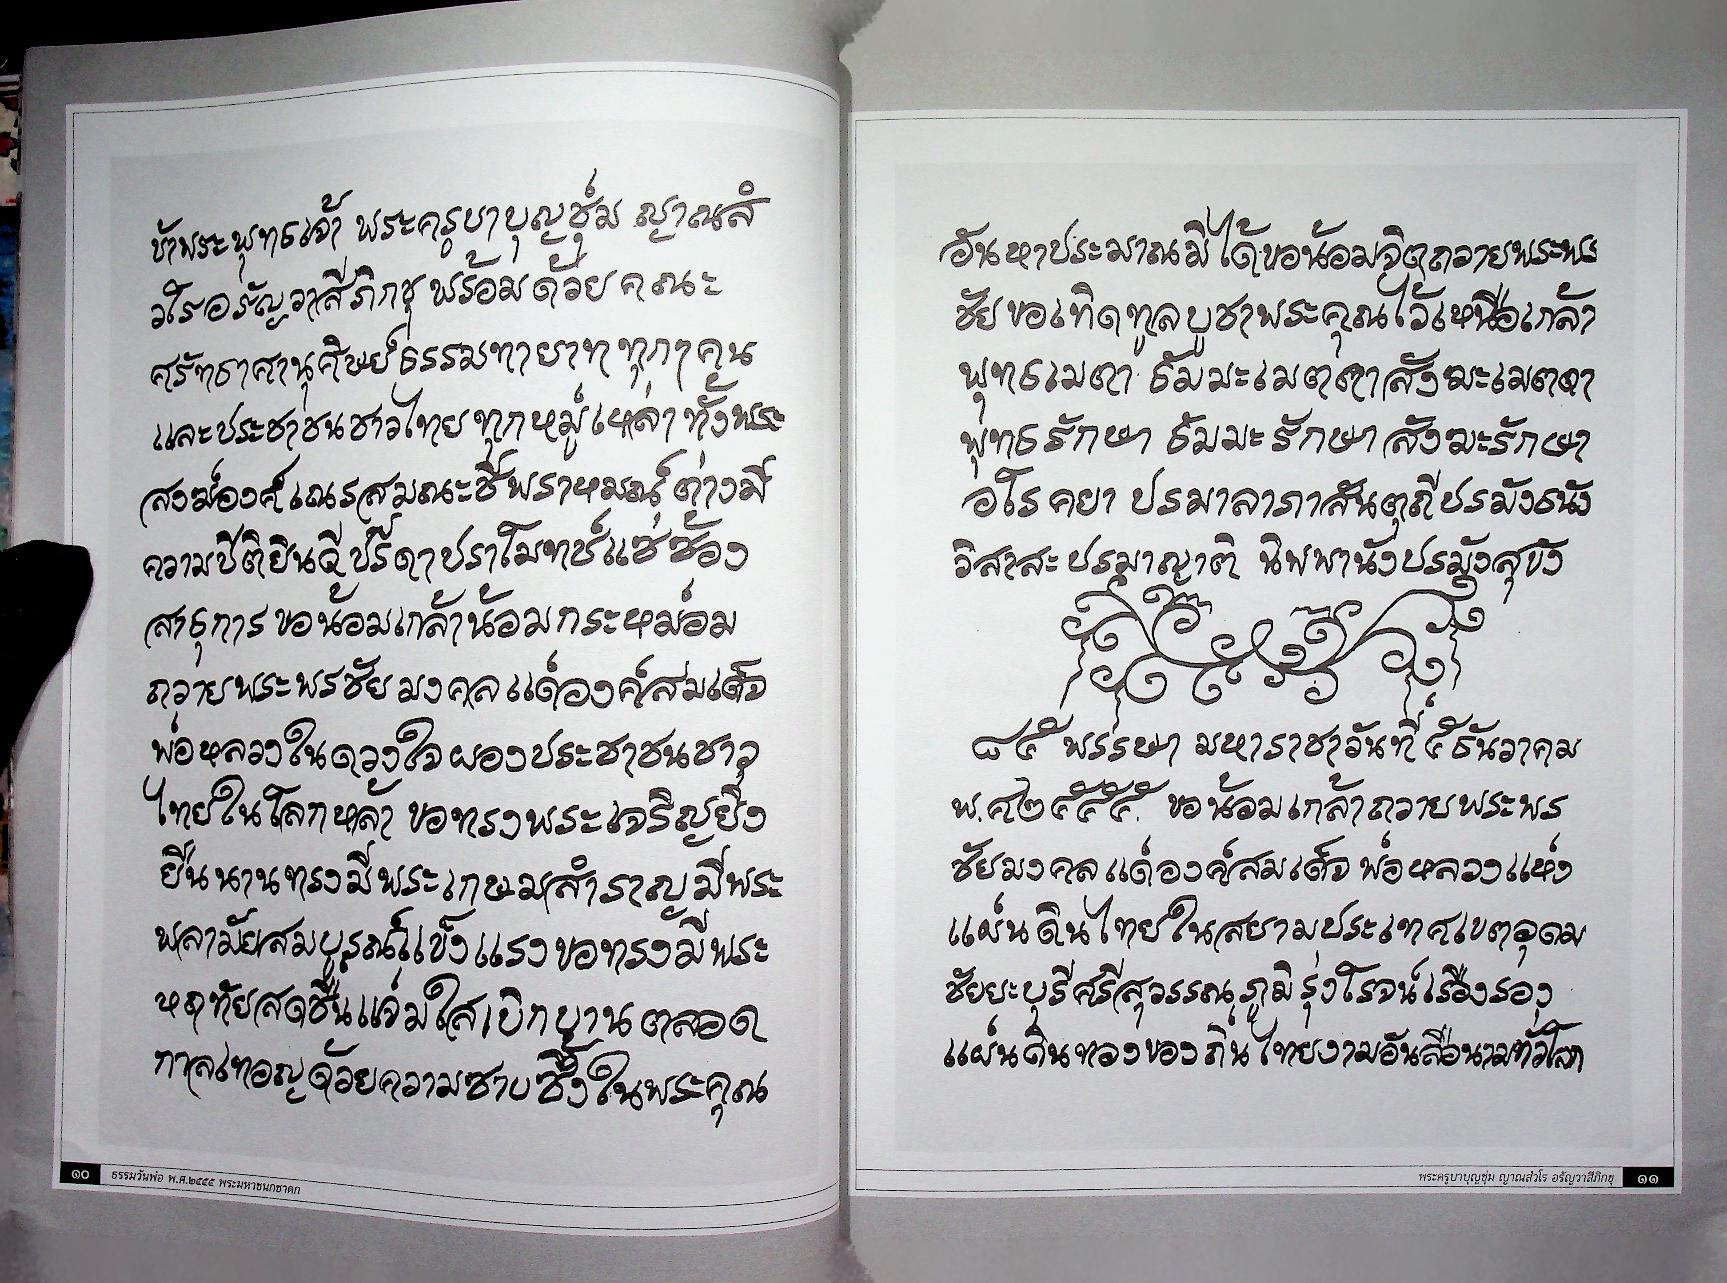 ข้าพระพุทธเจ้า พระครูบาบุญชุ่ม ญาณสํ
วโรอรัญวาสีภิกขุ พร้อมด้วย คณะ
ศรัทธาศานุศิษย์ธรรมทายาท ทุกๆ คน
และประชาชนชาวไทย ทุกหมู่เหล่า ทั้งพระ
สงฆ์องค์เณรสมณะชีพราหมณ์ ต่างมี
ความปีติยินดี ปรีดาปราโมทย์แซ่ซ้อง
สาธุการ ขอน้อมเกล้าน้อมกระหม่อม
ถวายพระพรชัยมงคล แด่องค์สมเด็จ
พ่อหลวงในดวงใจ ผองประชาชนชาว
ไทยในโลกหล้า ขอทรงพระเจริญยิ่ง
ยืนนานทรงมีพระเกษมสำราญ มีพระ
พลามัยสมบูรณ์แข็งแรง ขอทรงมีพระ
หฤทัยสดชื่นแจ่มใสเบิกบาน ตลอด
กาลเทอญด้วยความซาบซึ้งในพระคุณ
๑๐ ธรรมวันพ่อ พ.ศ.๒๕๕๕ พระมหาชนกชาดก
อันหาประมาณมิได้ขอน้อมจิตถวายพระพร
ชัย ขอเทิดทูลบูชาพระคุณไว้เหนือเกล้า
พุทธเมตตา ธัมมะเมตตาสังฆะเมตตา
พุทธรักษา ธัมมะรักษา สังฆะรักษา
อโรคยา ปรมาลาภาสันตุถีปรมังธนัง
วิสาสะ ปรมาญาติ นิพพานังปรมังสุขัง
๘๕ พรรษา มหาราชาวันที่ ๕ ธันวาคม
พ.ศ ๒๕๕๕. ขอน้อมเกล้าถวายพระพร
ชัยมงคล แด่องค์สมเด็จ พ่อหลวงแห่ง
แผ่นดินไทยในสยามประเทศเขตอุดม
ชัยยะบุรีศรีสุวรรณภูมิ รุ่งโรจน์เรืองรอง
แผ่นดินทองของถิ่นไทยงามอันลือนามทั่วโลก
พระครูบาบุญชุ่ม ญาณสํวโร อรัญวาสีภิกขุ ๑๑